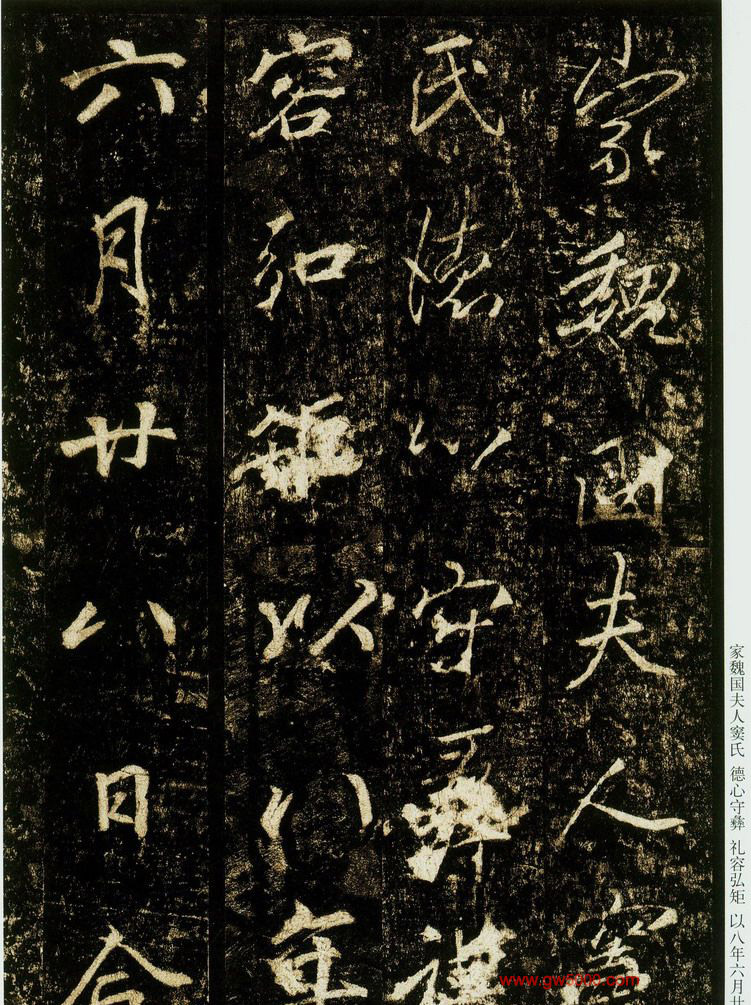 家魏國夫人竇
氏德心守彝禮
容弘矩以八年
六月廿八日合
家魏国夫人窦氏 德心守彝 礼容弘矩 以八年六月廿
www.gw5000.com